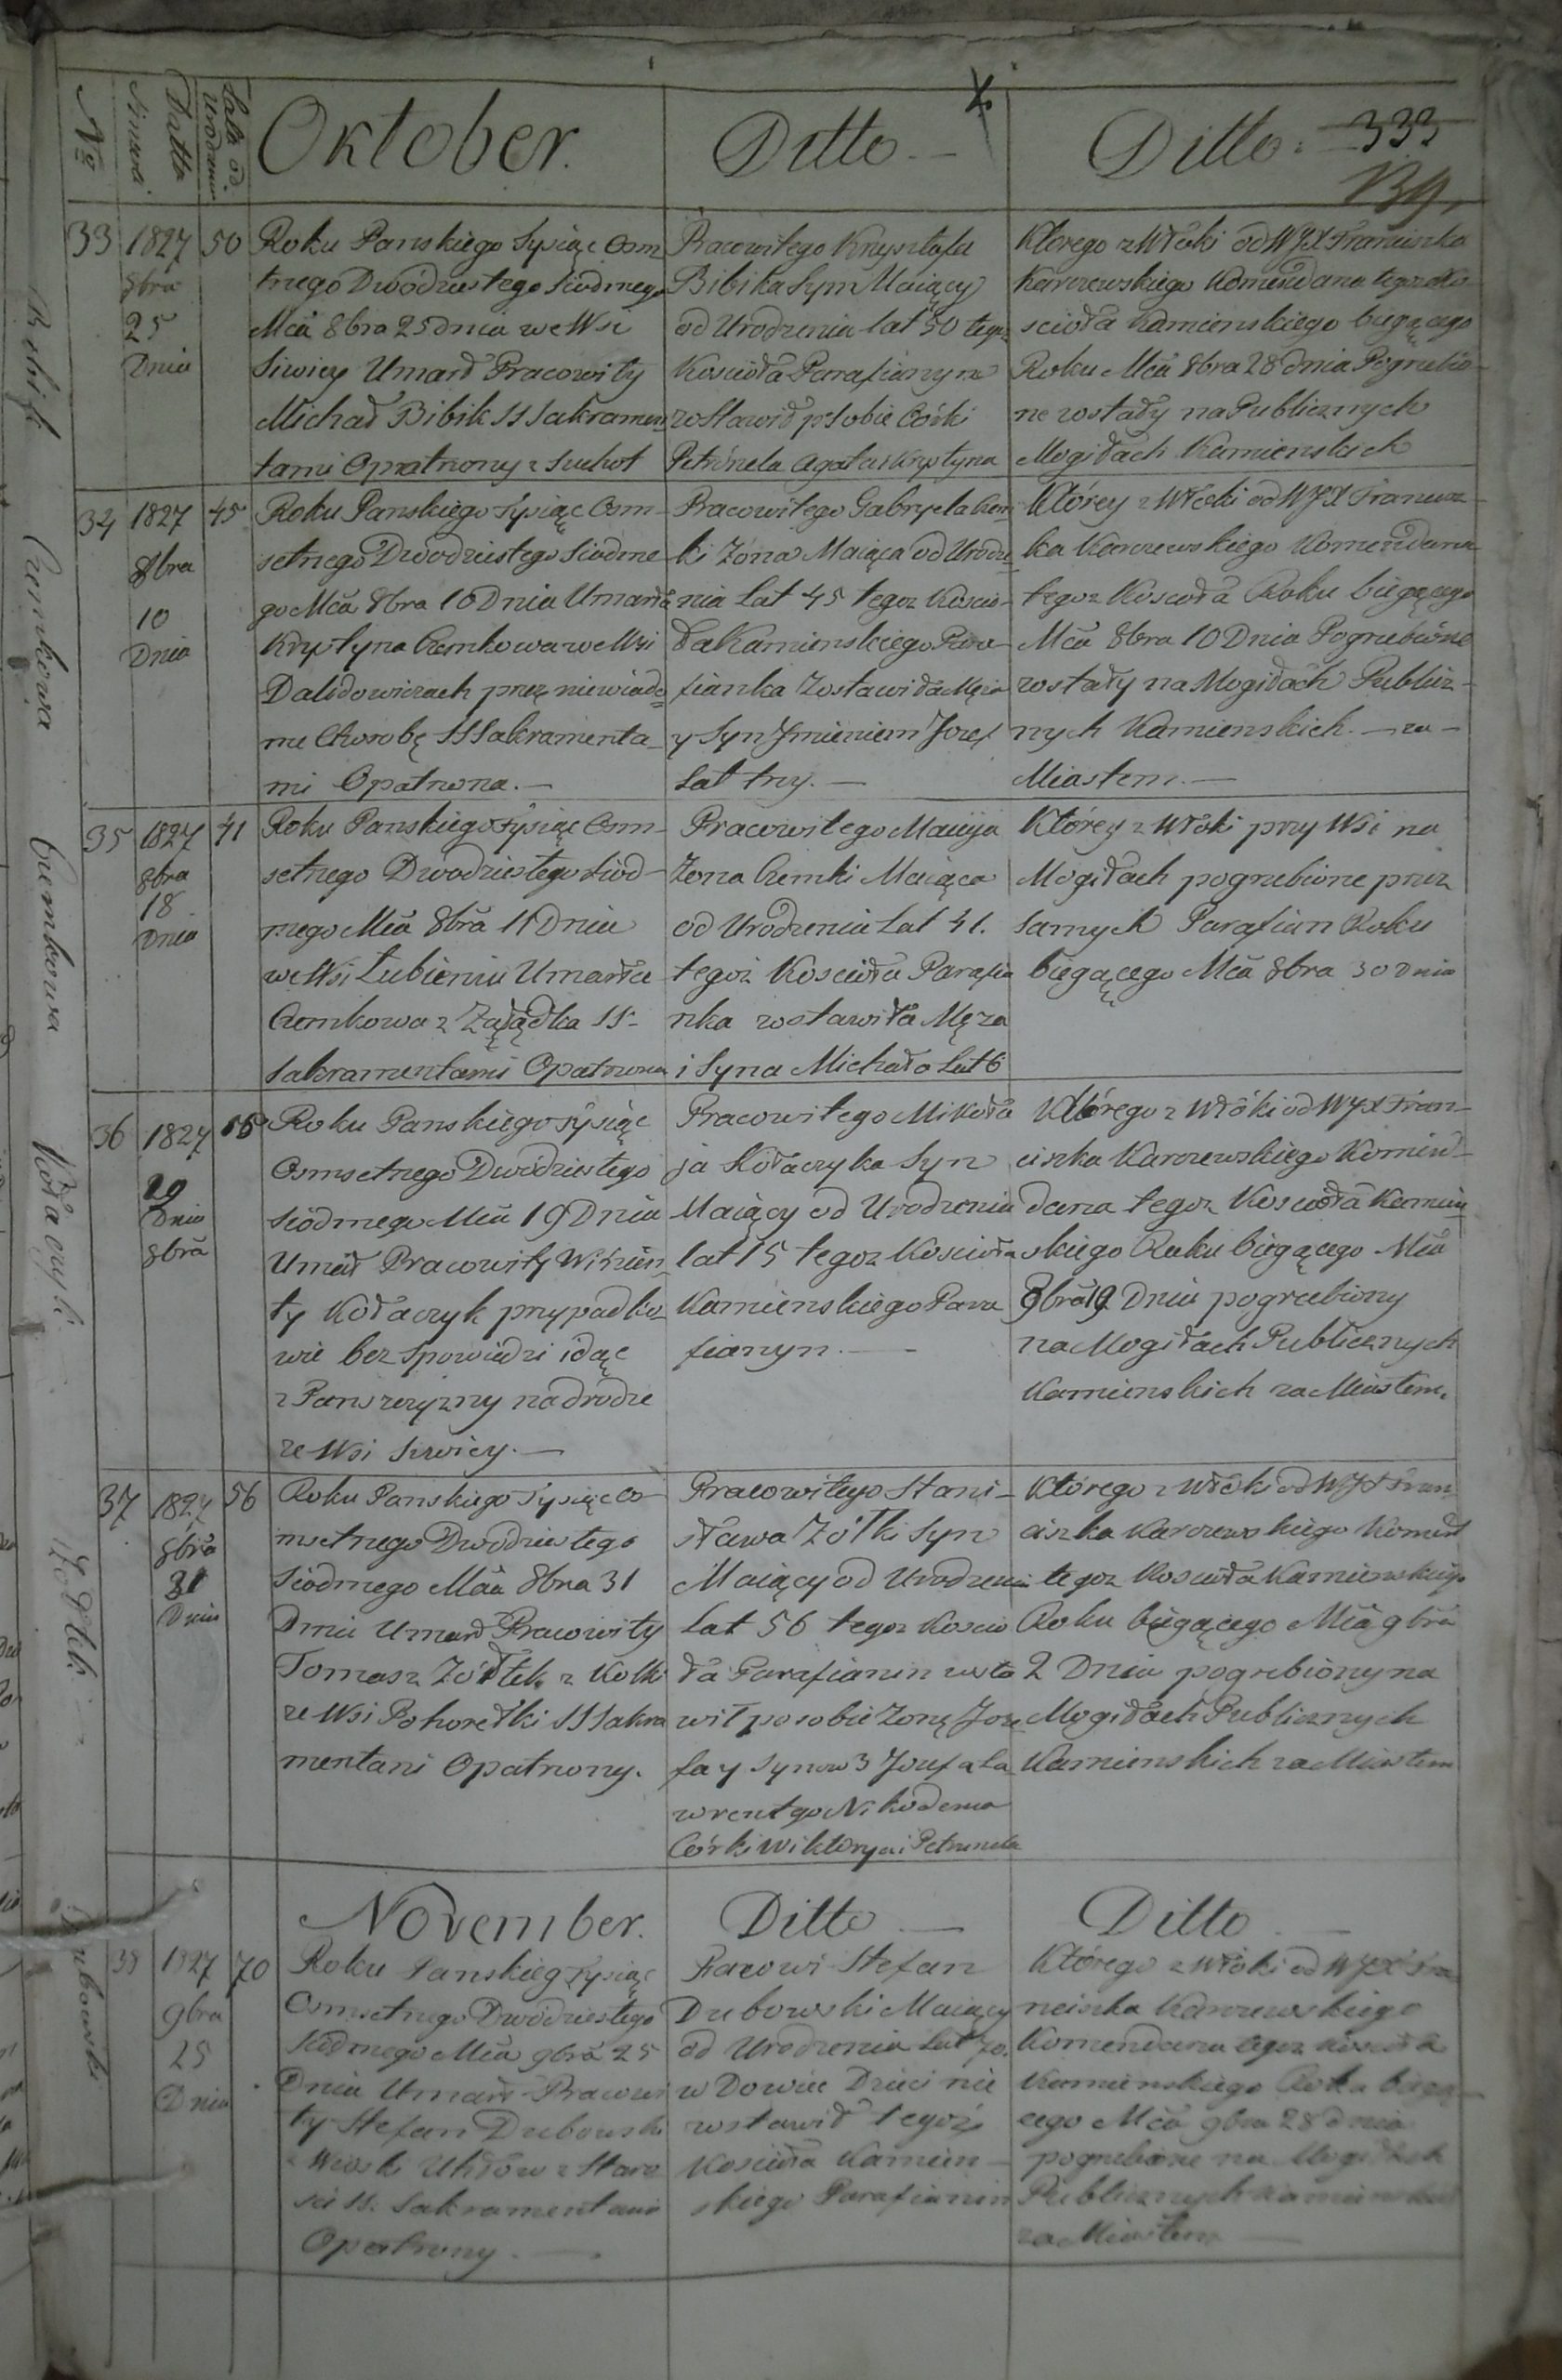 Nro
Datta
Śmierci
Lata od
Urodzenia
Oktober.
Ditto
Ditto
333
Bibik
33
1827
8bra
25
Dnia
50
Roku Panskiego Tysiąc Osm
tnego Dwódziestego Siódmego
Mca 8bra 25 dnia we Wsi
Siwicy Umarł Pracowity
Michał Bibik SS Sakramen
tami Opatrzony z Suchot
Pracowitego Krysztofa
Bibika Syn Maiący
od Urodzenia lat 50 tegoż
Koscioła Parafianyn
zostawił p Sobie Córki
Petrónela Agata i Krystyna
Ktorego zwłoki od WJX Franciszka
Karczewskiego Komendana tegoż Ko-
scioła Kamienskiego biegącego
Roku Mca 8bra 28 dnia Pogrzebio-
ne zostały na Publicznych
Mogiłach Kamienskich
Czemkowa
34
1827
8bra
10
Dnia
45
Roku Panskiego Tysiąc Osm-
setnego Dwódziestego Siódme
go Mca 8bra 10 Dnia Umarła
Krystyna Czemkowa we Wsi
Dalidowiczach przez niewiado
me Chorobę SS Sakramenta-
mi Opatrzona.
Pracowitego Gabryela Czem
ki Zóna Maiąca od Urodze
nia Lat 45 tegoz Koscio-
ła Kamienskiego Para-
fianka Zostawiła Męża
y Syn Jmieniem Jozef
Lat trzy.
Którey zwłoki od WJX Francisz-
ka Karczewskiego Komendana
tegoz Koscioła Roku biegącego
Mca 8bra 10 Dnia Pogrzebióne
zostały na Mogiłach Publicz-
nych Kamienskich. za
Miastem.
Czemkowa
35
1827
8bra
18
Dnia
41
Roku Panskiego Tysiąc Osm-
setnego Dwódziestego Siód-
mego Mca 8bra 18 Dnia
we Wsi Łubieniu Umarła
Czemkowa z Zołądka SS-
Sakramentami Opatrzona
Pracowitego Macieja
Zona Czemki Maiąca
od Urodzenia Lat 41.
tegoż Koscioła Parafia
nka zostawiła Męza
i Syna Michała Lat 6
Którey zwłoki przy Wsi na
Mogiłach pogrzebione przez
samych Parafian Roku
biegącego Mca 8bra 30 Dnia
Kołaczyk
36
1827
19
Dnia
8bra
15
Roku Panskiego Tysiąc
Osmsetnego Dwódziestego
Siódmego Mca 19 Dnia
Umarł Pracowity Wincen
ty Kołaczyk przypadko-
wie bez Spowiedzi idąc
z Panszczyzny na drodze
ze Wsi Siwicy.
Pracowitego Mikoła
ja Kołaczyka Syn
Maiący od Urodzenia
lat 15 tegoz Koscioła
Kamienskiego Para
fianyn.
Którego zwłóki od WJX Fran-
ciszka Karczewskiego Komen-
dana tegoz Koscioła Kamień
skiego Roku biegącego Mca
8bra 19 Dnia pogrzebiony
na Mogiłach Publicznych
Kamienskich za Miastem.
37
1827
8bra
31
Dnia
56
Roku Panskiego Tysiąc O-
smsetnego Dwódziestego
Siódmego Mca 8bra 31
Dnia Umarł Pracowity
Tomasz Zółtek z Kolki
ze Wsi Pohorełki SS Sakra
mentami Opatrzony.
Pracowitego Stani-
sława Zółtki Syn
Maiący od Urodzenia
Lat 56 tegoz Koscio
ła Parafianin zosta
wił po sobie Zonę Joze
fa y Synow 3 Jozefa La
wrentego Nikodema
Córki Wiktorya i Petrunela
Którego zwłoki od WJX Fran
ciszka Karczewskiego Komend
tegoz Koscioła Kamienskiego
Roku biegącego Mca 9bra
2 Dnia pogrzebiony na
Mogiłach Publicznych
Kamienskich za Miastem
November.
Ditto
Ditto
Dubowski
38
1827
9bra
25
Dnia
70
Roku Panskieg Tysiąc
Osmsetnego Dwódziestego
Siódmego Mca 9bra 25
Dnia Umarł Pracowi
ty Stefan Dubowski
z Wioski Uhłow z Staro
sci SS. Sakramentami
Opatrzony.
Pracowi Stefan
Dubowski Maiący
od Urodzenia Lat 70.
w Dowiec Dzieci nie
zostawił tegoż
Koscioła Kamien-
skiego Parafianin
Którego zwłoki od WJX Fra
nciszka Karczewskiego
Komendana tegoz Koscioła
Kamienskiego Roku biegą-
cego Mca 9bra 28 dnia
pogrzebione na Mogiłach
Publicznych Kamienskich
za Miastem